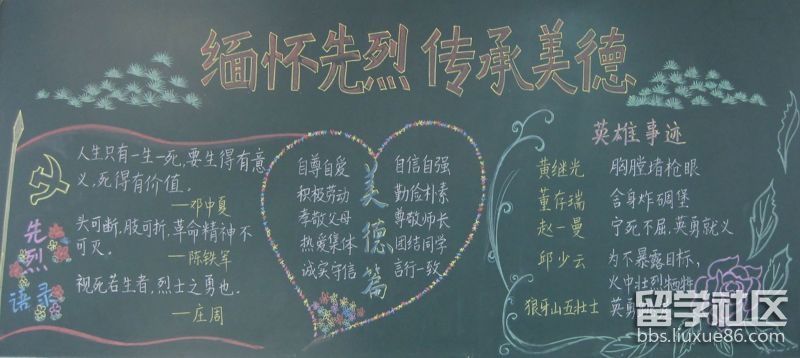 缅怀先烈 传承美德
先烈语录
人生只有一生一死,要生得有意
义,死得有价值。
—邓中夏
头可断,肢可折,革命精神不
可灭。
—陈铁军
视死若生者,烈士之勇也。
—庄周
美德篇
自尊自爱
积极劳动
孝敬父母
热爱集体
诚实守信
自信自强
勤俭朴素
尊敬师长
团结同学
言行一致
英雄事迹
黄继光 胸膛堵枪眼
董存瑞 舍身炸碉堡
赵一曼 宁死不屈,英勇就义
邱少云 为不暴露目标,
火中壮烈牺牲
狼牙山五壮士 英勇
留学社区
bbs.liuxue86.com